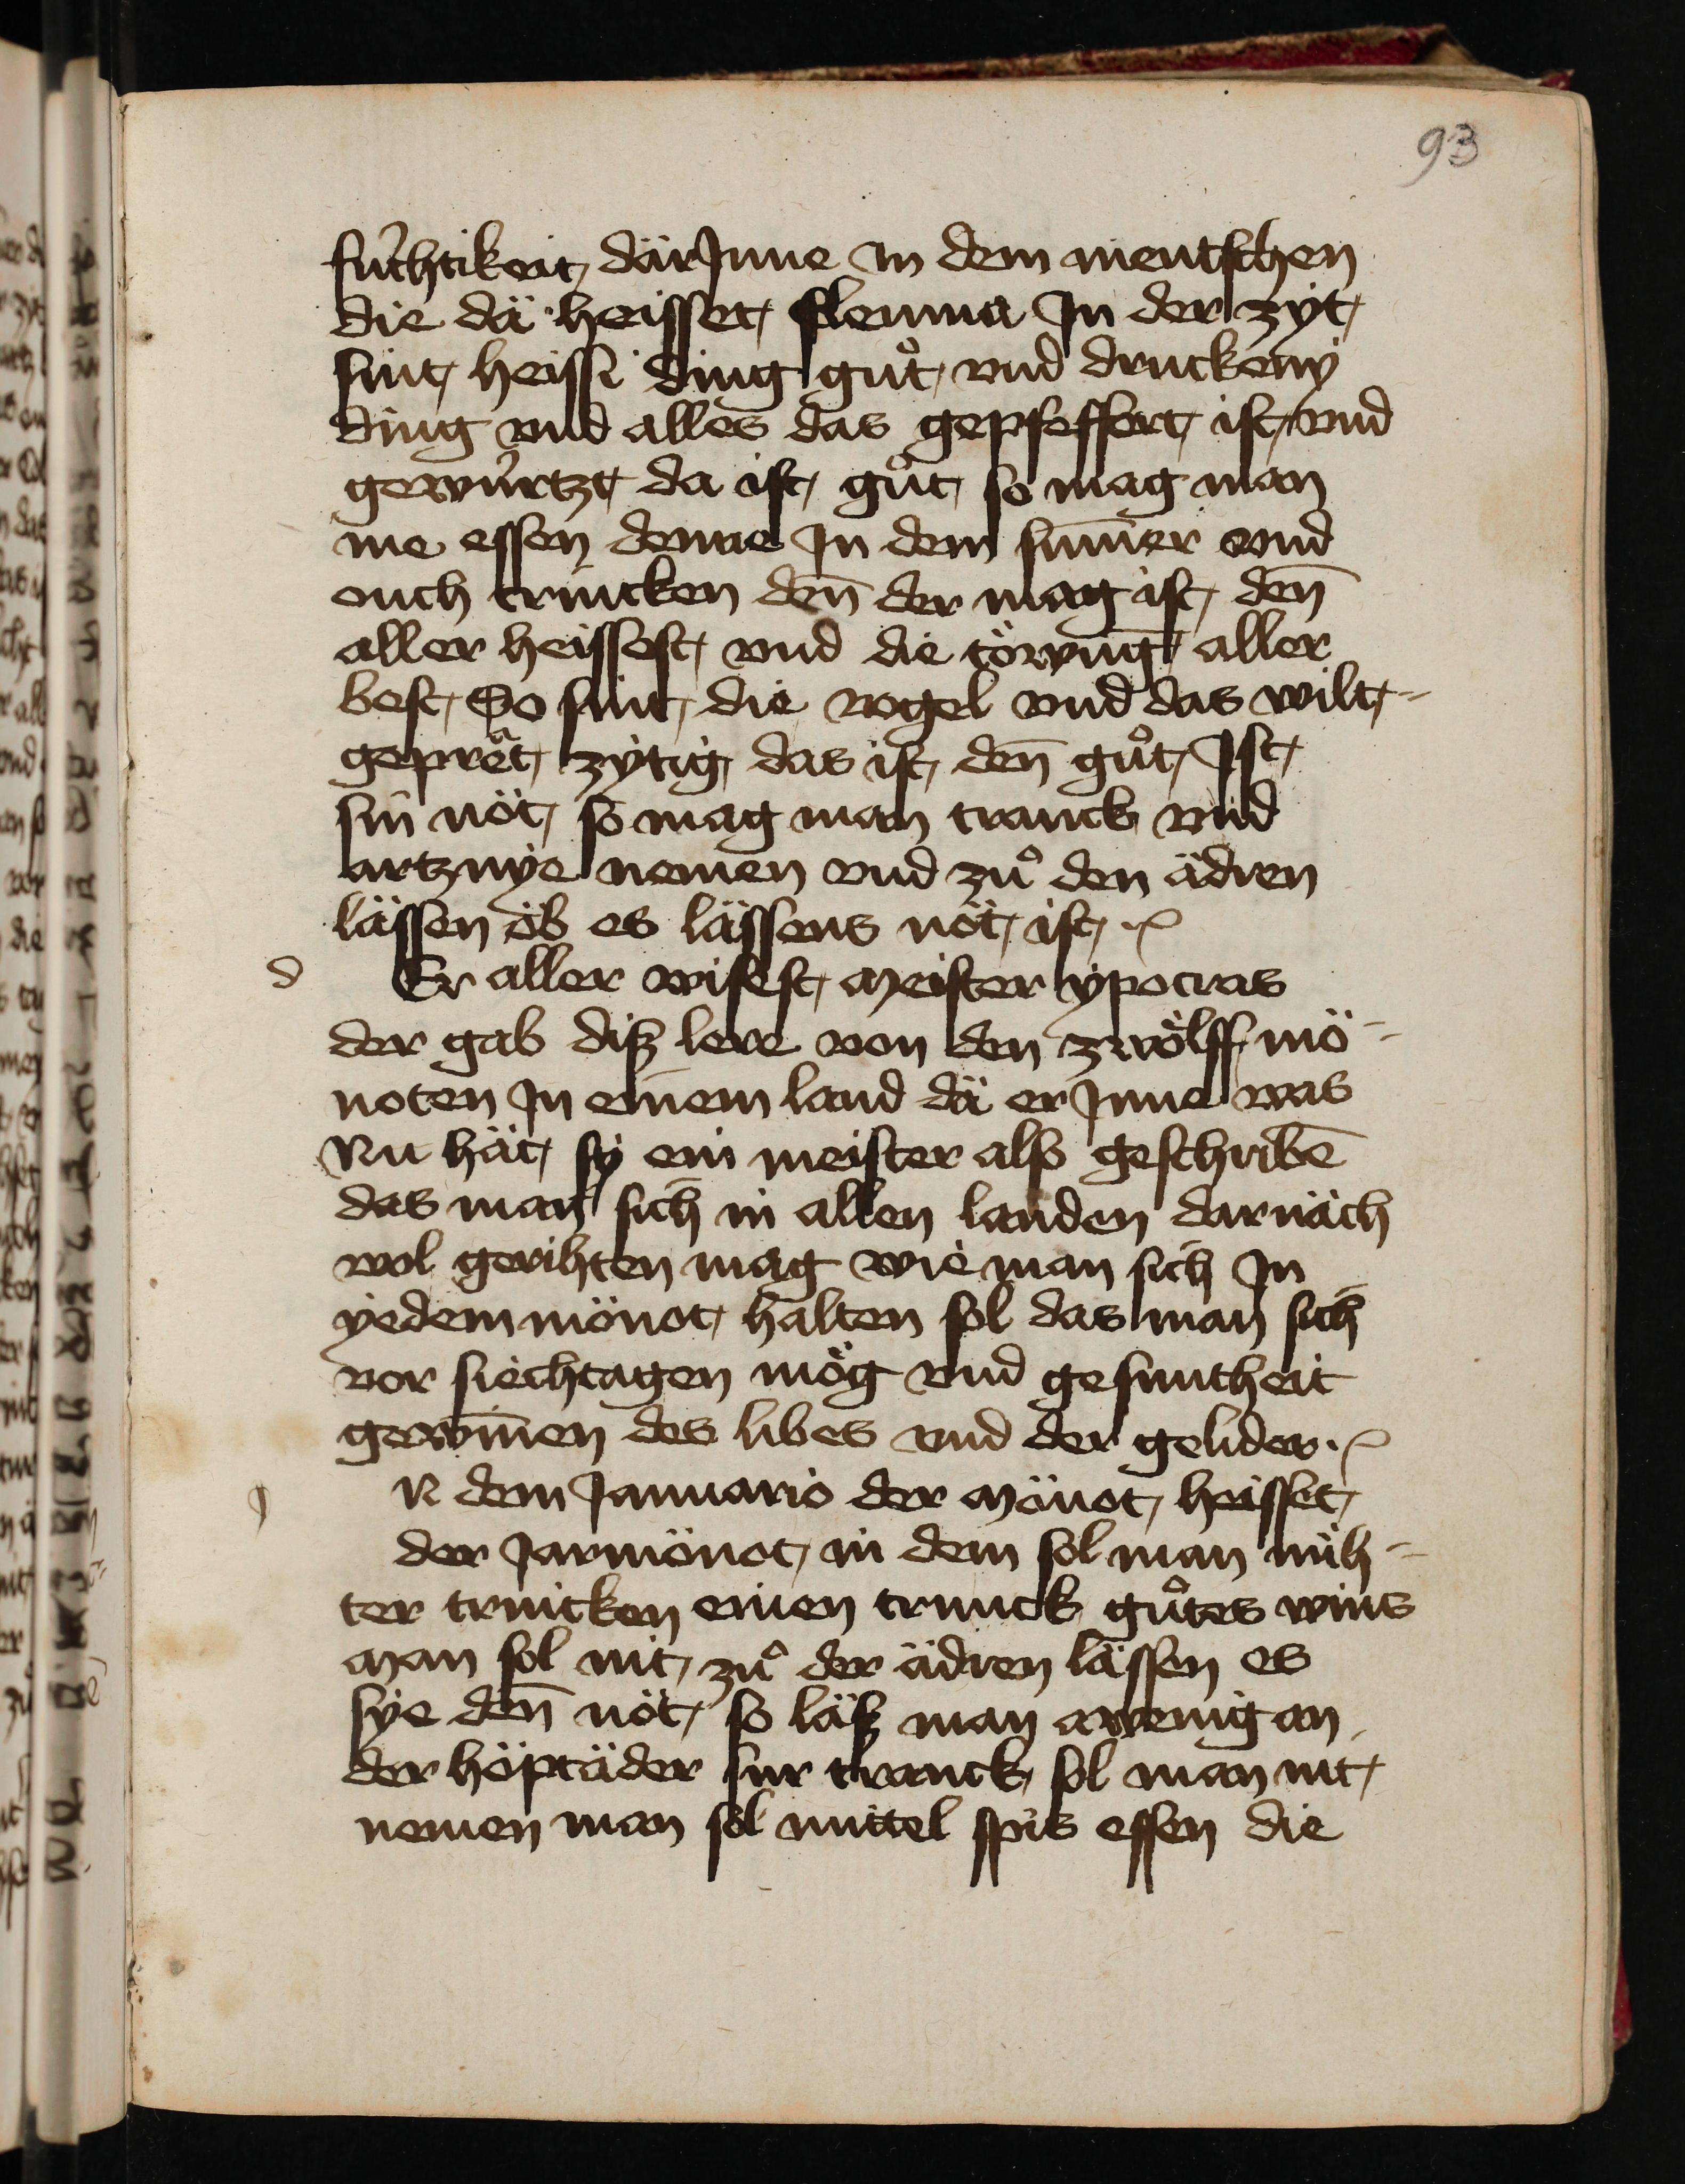 93
fúchtikeit därJnne Jn dem mentschen
die dä heisset flemma Jn der zyt
sint heissi ding guͦt vnd druckeny
ding vnd alles das gepfeffert ist vnd
gewúrtzt da ist guͦt so mag man
me essen denne Jn dem sum̄er vnd
ouch trincken den̄ der mag ist den̄
aller heissest vnd die töwung aller
best So sint die vogel vnd das wilt-
geprët zytig das ist den̄ guͦt Jst
sin nöt so mag man tranck vnd
artznye nemen vnd zuͦ den ädren
lässen öb es lässens nöt ist
d Er aller wisest meister ypocras
der gab disz lere von den zwölff mö-
noten Jn einem land dä er Jnne was
Nu hät sy ein meister also geschribē
das man sich in allen landen darnäch
wol gerihten mag wie man sich Jn
yedem mönot halten sol das man sich
vor siechtagen mög vnd gesuntheit
gewin̄en des libes vnd der gelider
J N dem Januario der mönot heisset
der Jarmönot in dem sol man nüh-
ter trincken einen trunck guͦtes wins
man sol nit zuͦ der ädren lässen es
sye den̄ nöt so läsz man a wenig an
der höptäder sur tranck sol man nit
nemen man sol mittel spis essen die